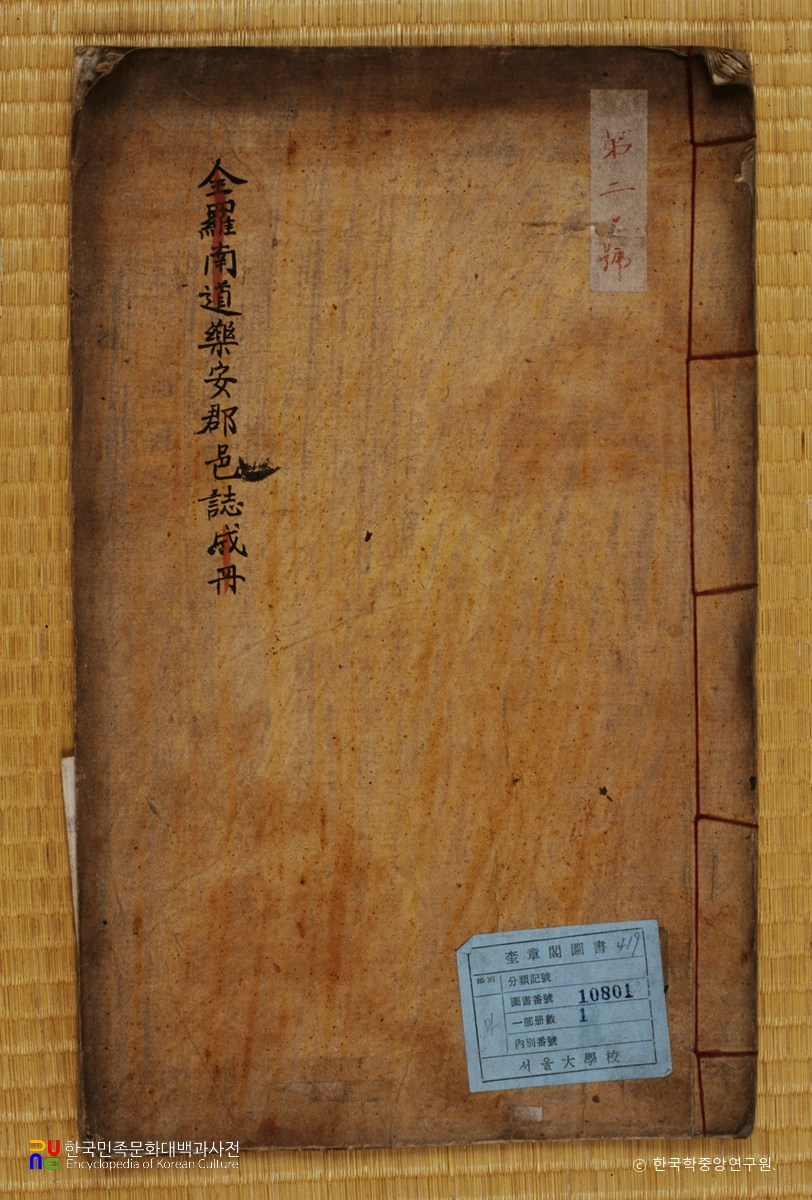 第二號
全羅南道樂安郡邑誌成冊
奎章閣圖書
419
分類記號
圖書番號 10801
一部册數 1
內別番號
서울大學校
한국민족문화대백과사전
Encyclopedia of Korean Culture
© 한국학중앙연구원.